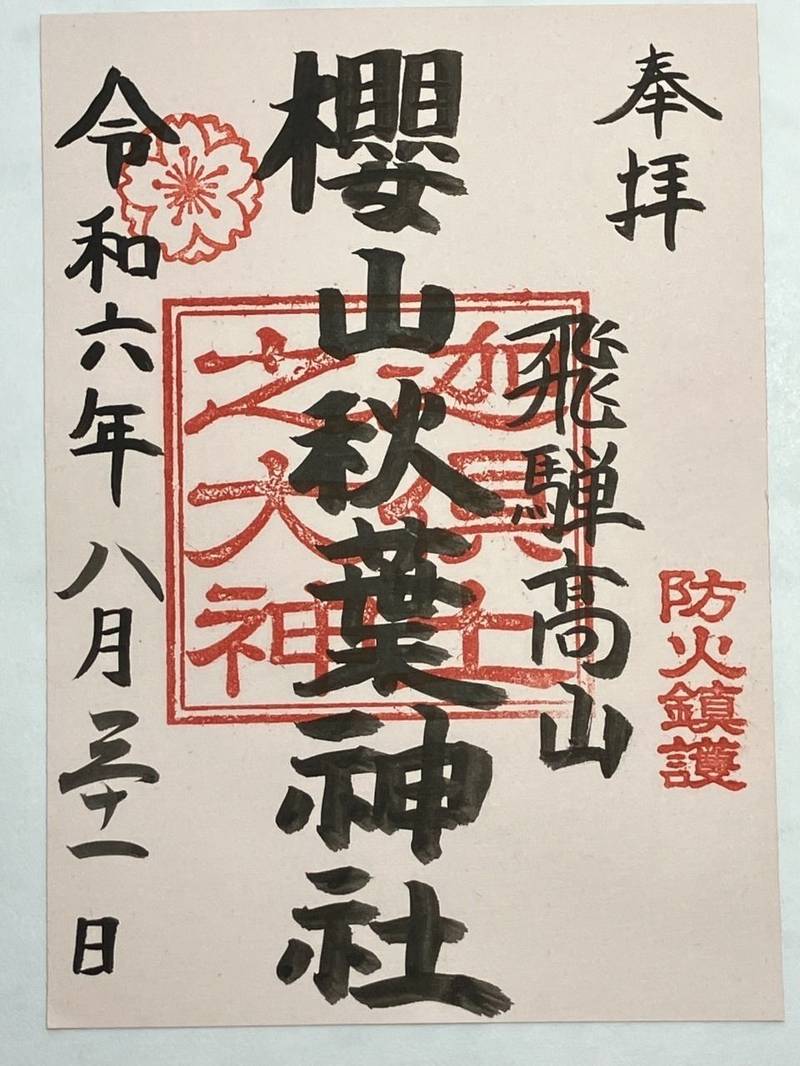 奉拝
飛騨高山
防火鎮護
櫻山秋葉神社
迦具土之大神
令和六年八月三十一日